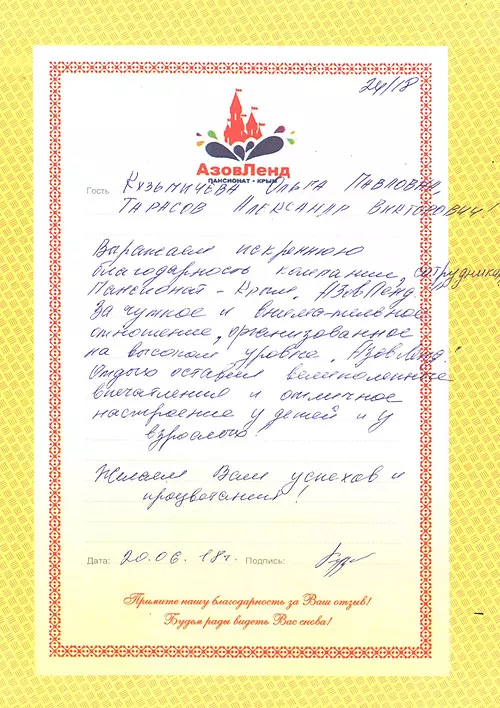 24/18
АзовЛенд
ПАНСИОНАТ - КРЫМ
Гость Кузьмичева Ольга Павловна,
Тарасов Александр Викторович!
Выражаем искреннюю
благодарность компании, сотрудникам
Пансионат - Крым, АзовЛенд.
За чуткое и внимательное
отношение, организованное
на высоком уровне, АзовЛенд!
Отдых оставил великолепные
впечатления и отличное
настроение у детей и у
взрослых!
Желаем Вам успехов и
процветания!
Дата: 20.06.18г. Подпись:
Примите нашу благодарность за Ваш отзыв!
Будем рады видеть Вас снова!